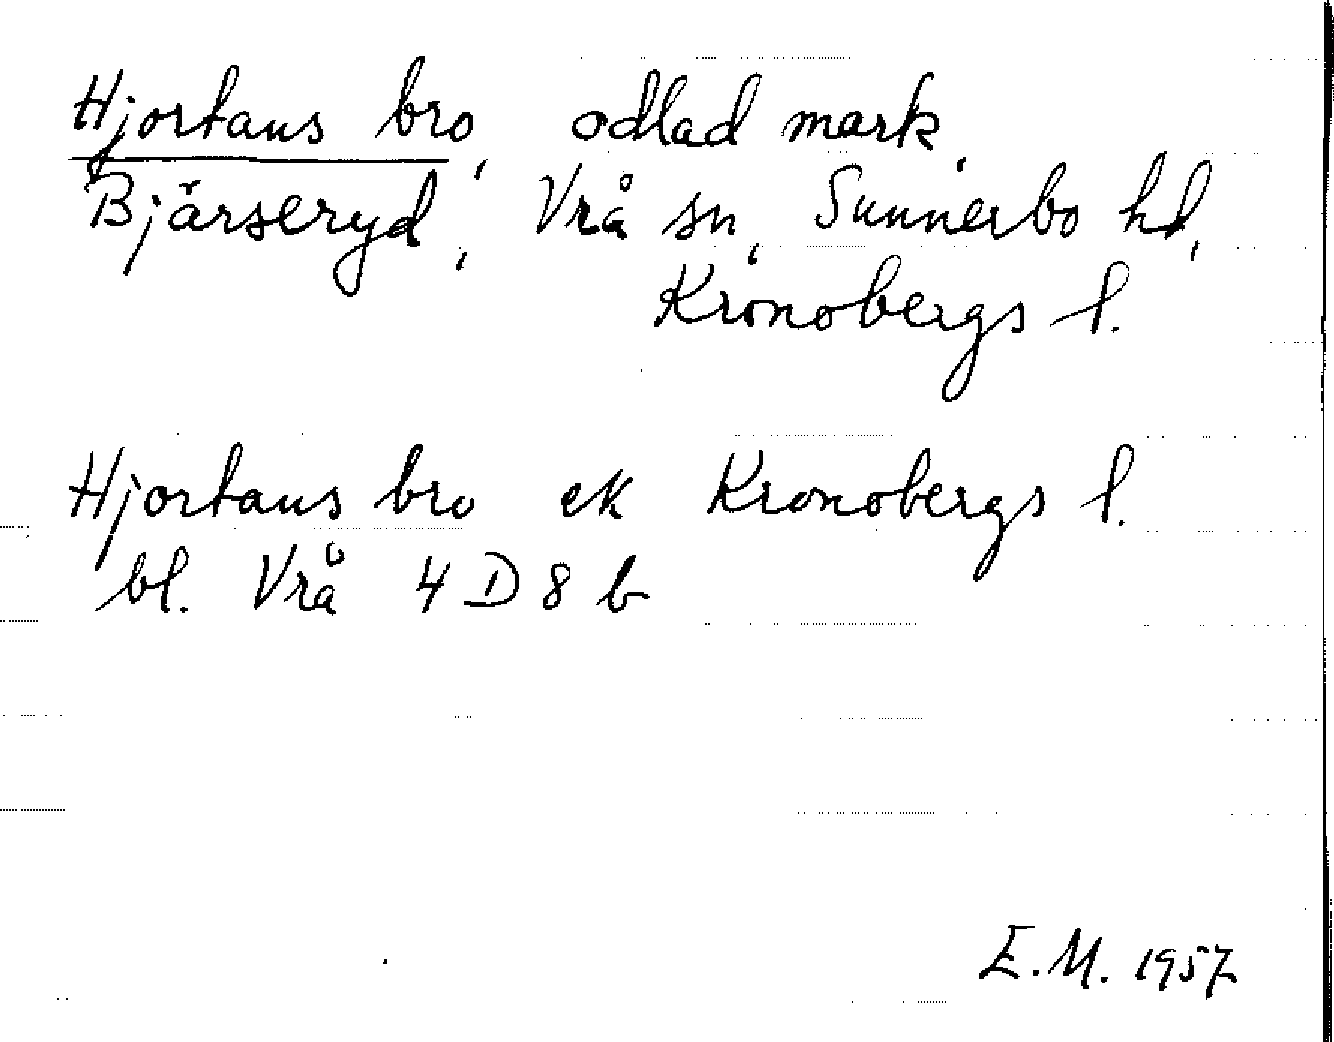 Hjortans bro, odlad mark,
Bjärseryd, Vrå sn, Sunnerbo hd,
Kronobergs l.
Hjortans bro ek Kronobergs l.
bl. Vrå 4 D 8 b
E.M. 1957